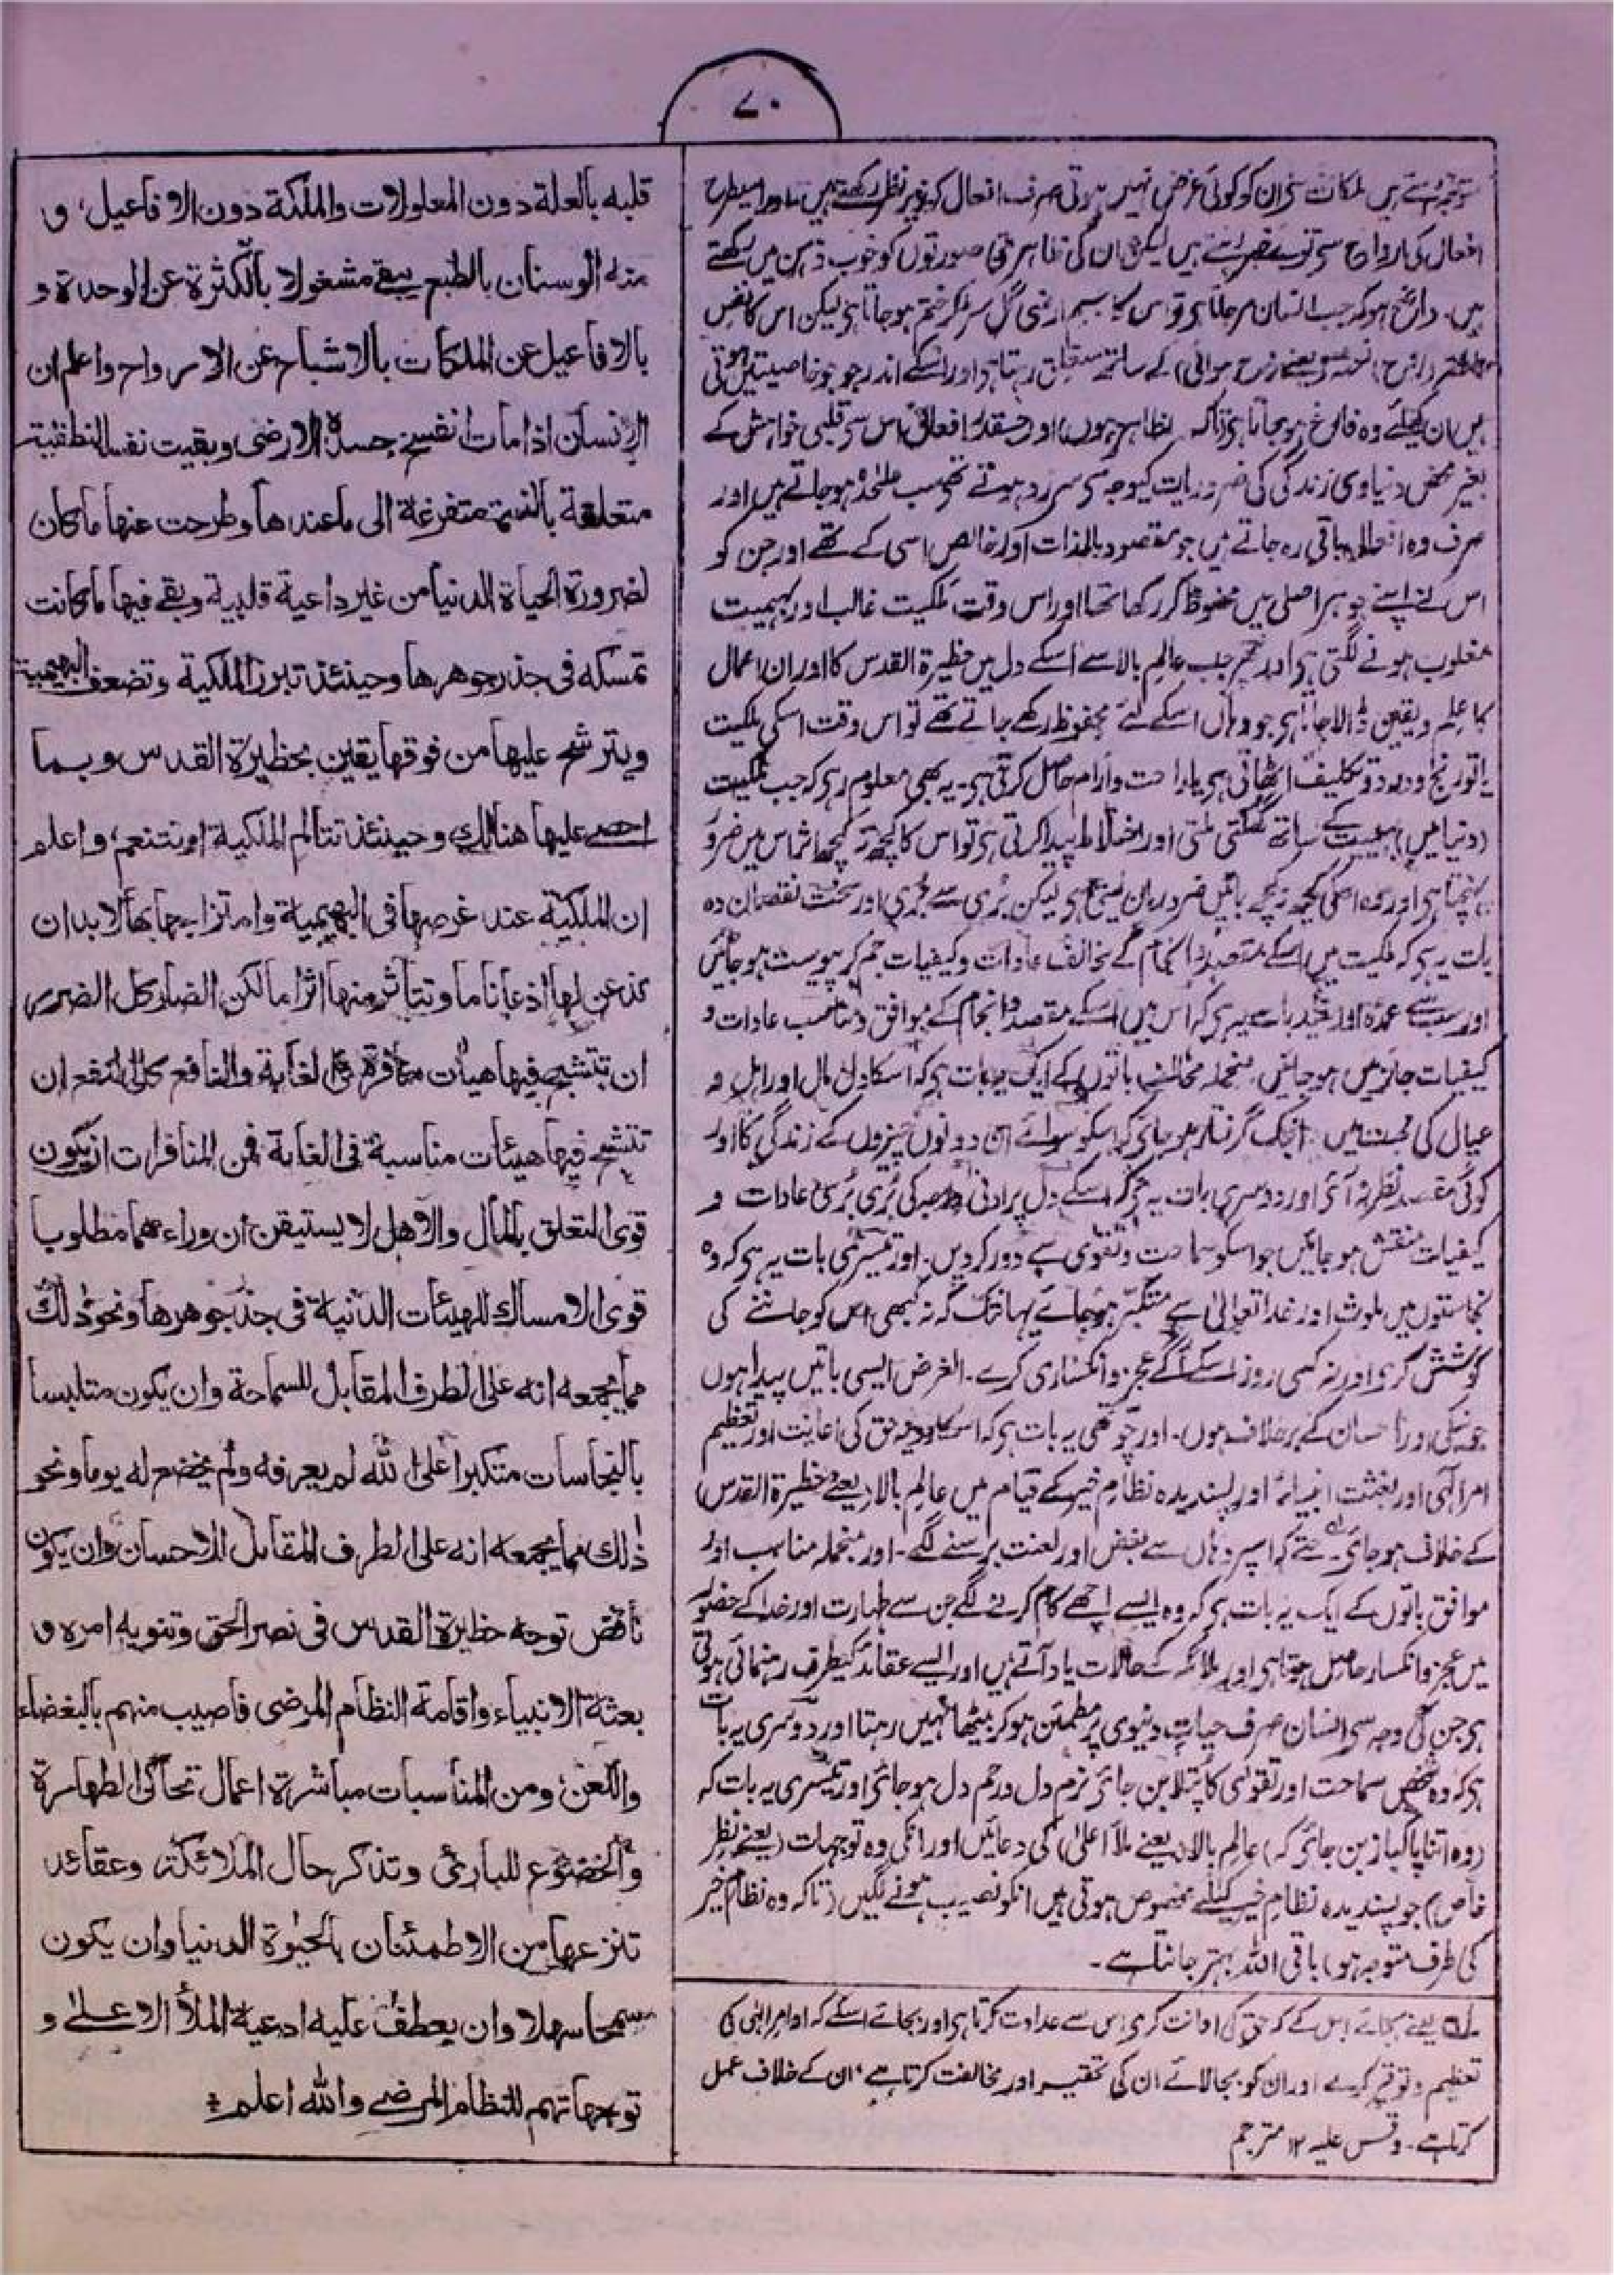 ۷۰
متوجہ رہتے ہیں ملکات سے ان کو کوئی غرض نہیں ہوتی صرف افعال کو زیر نظر رکھتے ہیں اور اسیطرح
افعال کی ارواح سے تو بے خبر رہتے ہیں لیکن ان کی ظاہری صورتوں کو خوب ذہن میں رکھتے
ہیں۔ واضح ہو کہ جب انسان مر جاتا ہی تو اس کا جسم ارضی گل سڑ کر ختم ہو جاتا ہی لیکن اس کا نفس
نسمہ (یعنے روح ہوائی) کے ساتھ متعلق رہتا ہی اور اسکے اندر جو جو خاصیتیں ہوتی
ہیں ان کیلئے وہ فارغ ہو جاتا ہی (تاکہ ظاہر ہوں) اور جسقدر افعال اس سے قلبی خواہش کے
بغیر محض دنیاوی زندگی کی ضروریات کیوجہ سے سرزد ہوتے تھے سب علٰحدہ ہو جاتے ہیں اور
صرف وہ افعال باقی رہ جاتے ہیں جو مقصود بالذات اور خالص اسی کے تھے اور جن کو
اس نے اپنے جوہر اصلی میں محفوظ کر رکھا تھا اور اس وقت ملکیت غالب اور بہیمیت
مغلوب ہونے لگتی ہی اور پھر جب عالم بالا سے اسکے دل میں حظیرۃ القدس کا اور ان اعمال
کا علم و یقین ڈالا جاتا ہی جو وہاں اسکے لئے محفوظ رکھے جاتے تھے تو اس وقت اسکی ملکیت
یا تو رنج و درد و تکلیف اٹھاتی ہی یا راحت و آرام حاصل کرتی ہی۔ یہ بھی معلوم رہی کہ جب ملکیت
(دنیا میں) بہیمیت کے ساتھ گھلتی ملتی اور اختلاط پیدا کرتی ہی تو اس کا کچھ نہ کچھ اثر اس میں ضرور
پہنچتا ہی اور وہ اسکی کچھ نہ کچھ باتیں ضرور مان لیتی ہی لیکن بُری سے بُری اور سخت نقصان دہ
بات یہ ہی کہ ملکیت میں اسکے مقصد و انجام کے مخالف عادات و کیفیات جم کر پیوست ہو جائیں
اور سب سے عمدہ اور مفید بات یہ ہی کہ اس میں اسکے مقصد و انجام کے موافق و مناسب عادات و
کیفیات جاگزیں ہو جائیں۔ منجملہ مخالف باتوں کے ایک یہ بات ہی کہ اسکا دل مال اور اہل و
عیال کی محبت میں اتنا گرفتار ہو جائی کہ اسکو سوائے ان دونوں چیزوں کے زندگی کا اور
کوئی مقصد نظر نہ آئی اور دوسری بات یہ ہی کہ اسکے دل پر ادنی درجہ کی بُری بُری عادات و
کیفیات منقش ہو جائیں جو اسکو سماحت و تقوی سے دور کر دیں۔ اور تیسری بات یہ ہی کہ وہ
نجاستوں میں ملوث اور خدا تعالیٰ سے متکبر ہو جائے یہانتک کہ نہ کبھی اس کو جاننے کی
کوشش کری اور نہ کسی روز اسکے آگے عجز و انکساری کرے۔ الغرض ایسی باتیں پیدا ہوں
جو نیکی اور احسان کے برخلاف ہوں۔ اور چوتھی یہ بات ہی کہ اسکا رویہ حق کی اعانت اور تعظیم
امر الٰہی اور بعثت انبیاء اور پسندیدہ نظامِ خیر کے قیام میں عالم بالا (یعنے حظیرۃ القدس)
کے خلاف ہو جائی۔ حتے کہ اسپر وہاں سے بغض اور لعنت برسنے لگے۔ اور منجملہ مناسب اور
موافق باتوں کے ایک یہ بات ہی کہ وہ ایسے اچھے کام کرنے لگے جن سے طہارت اور خدا کے حضور
میں عجز و انکسار حاصل ہوتا ہی اور ملائکہ کے حالات یاد آتے ہیں اور ایسے عقائد کیطرف رہنمائی ہوتی
ہی جن کی وجہ سی انسان صرف حیات دنیوی پر مطمئن ہو کر بیٹھا نہیں رہتا اور دوسری یہ بات
ہی کہ وہ شخص سماحت اور تقوٰی کا پُتلا بن جائی نرم دل و رحم دل ہو جائی اور تیسری یہ بات کہ
(وہ اتنا پاکباز بن جائی کہ) عالم بالا (یعنے ملأ اعلیٰ) کی دعائیں اور انکی وہ توجہات (یعنے نظر
خاص) جو پسندیدہ نظام خیر کیلئے مخصوص ہوتی ہیں انکو نصیب ہونے لگیں (تاکہ وہ نظام خیر
کی طرف متوجہ ہو) باقی اللہ بہتر جانتا ہے۔
لہ یعنے بجائے اس کے کہ حق کی اعانت کری اس سے عداوت کرتا ہی اور بجائے اسکے کہ اوامر الٰہی کی
تعظیم و توقیر کرے اور ان کو بجالائے ان کی تحقیر اور مخالفت کرتا ہے، ان کے خلاف عمل
کرتا ہے۔ وقس علیہ ۱۲ مترجم
قلبه بالعلة دون المعلولات والملكة دون الافاعيل، و
منه الوسنان بالطبع يبقى مشغولا بالكثرة عن الوحدة و
بالافاعيل عن الملكات بالاشباح عن الارواح واعلم ان
الانسان اذا مات انفسخ جسده الارضى وبقيت نفسه النطقية
متعلقة بالنسمة متفرغة الى ما عندها وطرحت عنها ما كان
لضرورة الحياة الدنيا من غير داعية قلبية وبقى فيها ما كانت
تمسكه فى جذر جوهرها وحينئذ تبرز الملكية وتضعف البهيمية
ويترشح عليها من فوقها يقين بحظيرة القدس وبما
احصى عليها هنالك وحينئذ تتالم الملكية او تتنعم، واعلم
ان الملكية عند غوصها فى البهيمية وامتزاجها بها لا بد ان
تذعن لها اذعانا ما وتتأثر منها اثرا ما لكن الضار كل الضرر
ان تتشبح فيها هيأت منافرة فى الغاية والنافع كل النفع ان
تتشبح فيها هيئات مناسبة فى الغاية فمن المنافرات ان يكون
قوى التعلق بالمال والاهل لا يستيقن ان وراءهما مطلوبا
قوى الامساك للهيئات الدنية فى جذر جوهرها ونحو ذلك
مما يجمعه انه على الطرف المقابل للسماحة وان يكون متلبسا
بالنجاسات متكبرا على الله لم يعرفه ولم يخضع له يوما ونحو
ذلك مما يجمعه انه على الطرف المقابل للاحسان وان يكون
ناقض توجه حظيرة القدس فى نصر الحق وتنويه امره و
بعثة الانبياء واقامة النظام المرضى فاصيب منهم بالبغضاء
واللعن، ومن المناسبات مباشرة اعمال تحاكى الطهارة
والخضوع للبارئ وتذكر حال الملائكة وعقائد
تنزعها من الاطمئنان بالحيوة الدنيا وان يكون
سمحا سهلا وان يعطف عليه ادعية الملأ الاعلى و
توجهاتهم للنظام المرضى والله اعلم